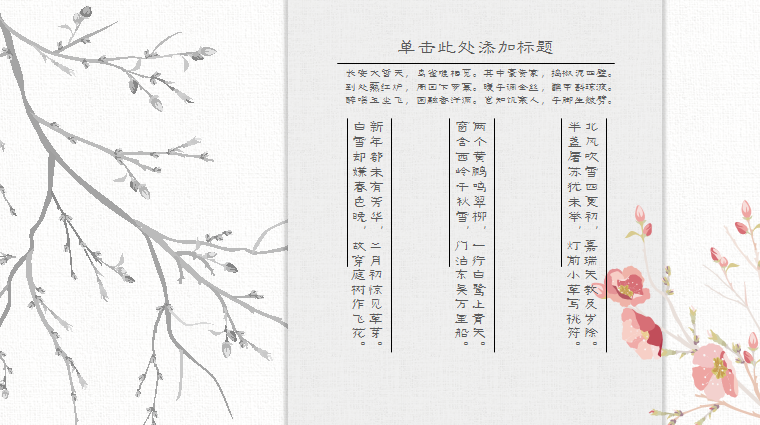 单击此处添加标题
长安大雪天，鸟雀难相觅。其中豪贵家，捣椒泥四壁。
到处爇红炉，周回下罗幂。暖手调金丝，蘸甲斟琼液。
醉唱玉尘飞，困融香汗滴。岂知饥寒人，手脚生皴劈。
北风吹雪四更初，嘉瑞天教及岁除。
半盏屠苏犹未举，灯前小草写桃符。
两个黄鹂鸣翠柳，一行白鹭上青天。
窗含西岭千秋雪，门泊东吴万里船。
新年都未有芳华，二月初惊见草芽。
白雪却嫌春色晚，故穿庭树作飞花。